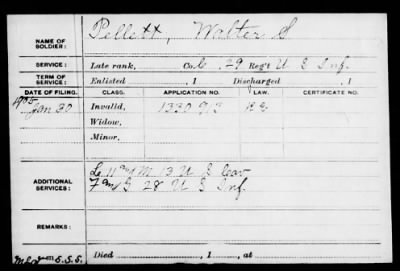 NAME OF SOLDIER: Pellett, Walter S
SERVICE: Late rank, Co. G, 29 Reg't U S Inf.
TERM OF SERVICE: Enlisted , 1 Discharged , 1
DATE OF FILING. CLASS. APPLICATION NO. LAW. CERTIFICATE NO.
1905
Jan 30 Invalid, 1330913
Widow,
Minor,
ADDITIONAL SERVICES: M 13 U S Cav
G 28 U S Inf.
REMARKS:
Died , 1 , at